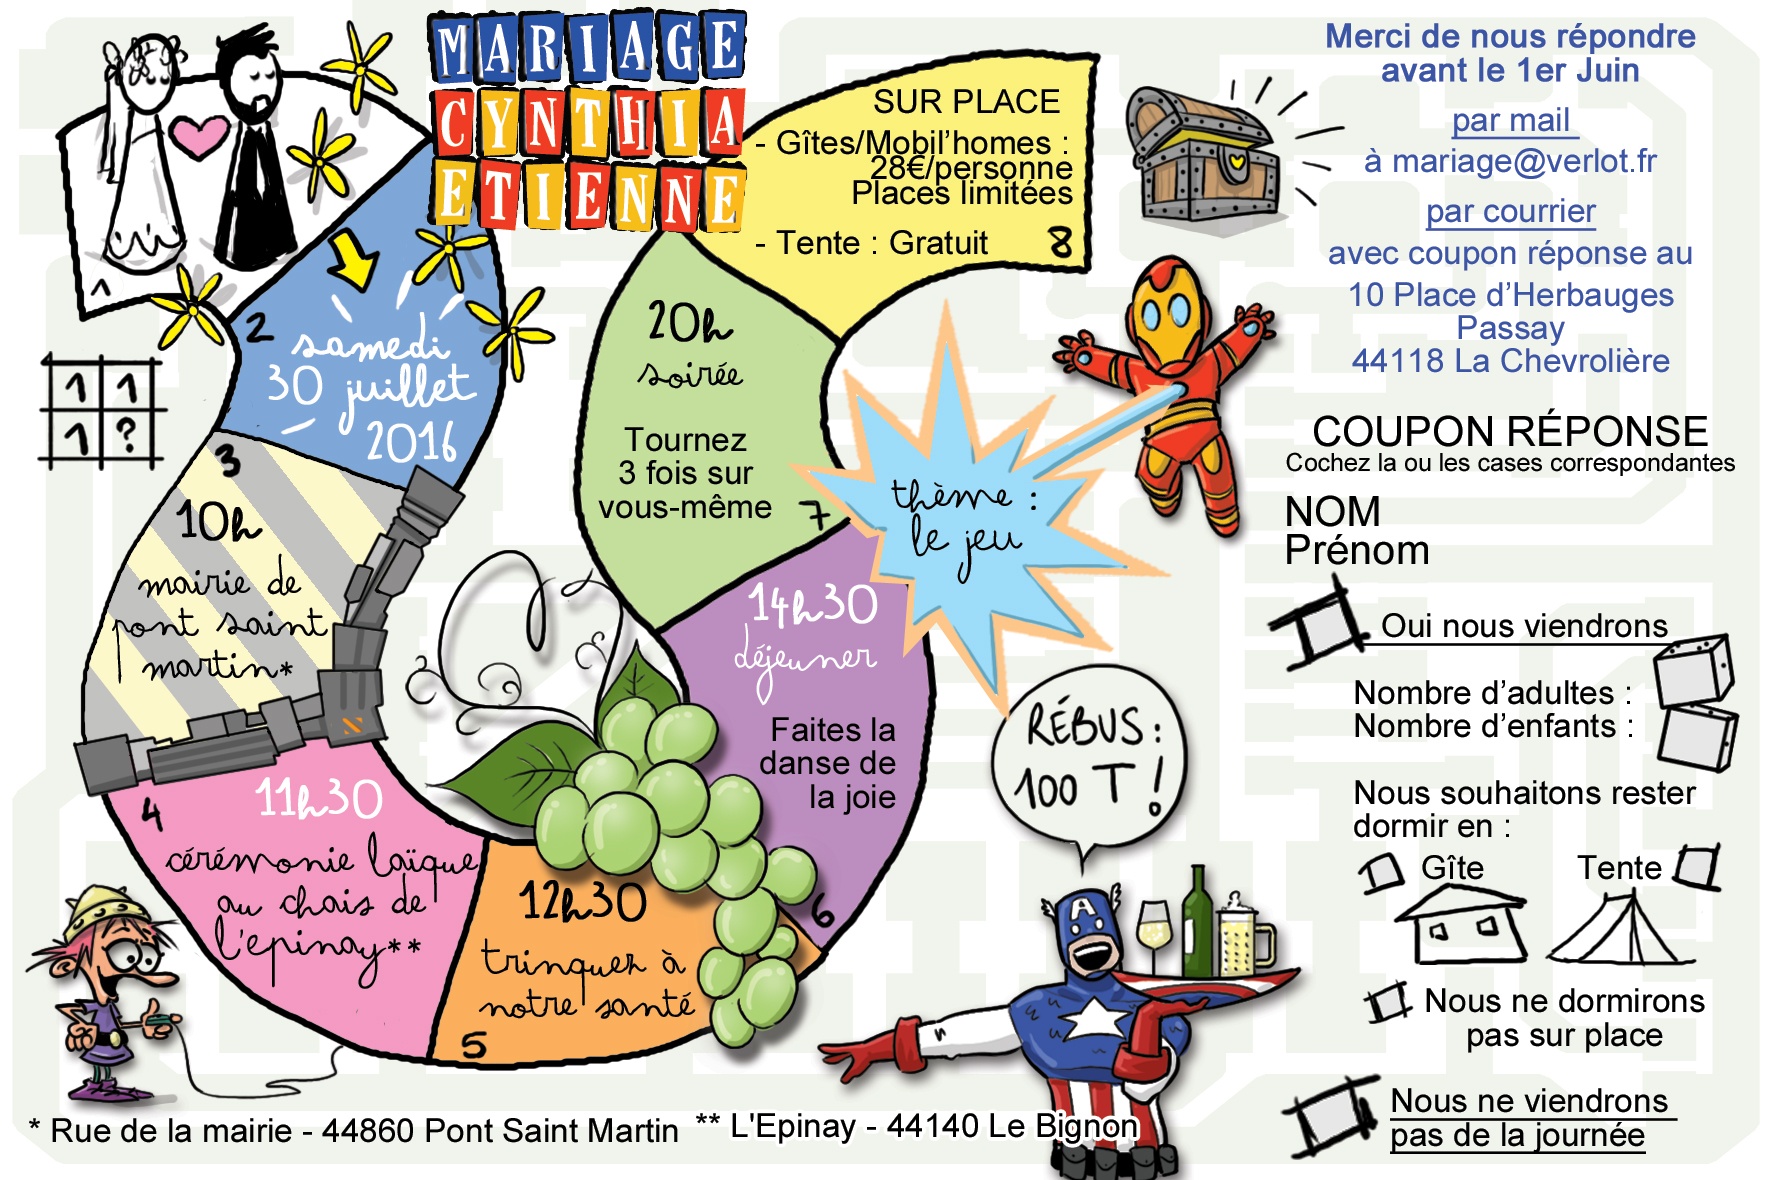 MARIAGE
CYNTHIA
ETIENNE
1
2
samedi
30 juillet
2016
1 1
1 ?
3
10h
mairie de
pont saint
martin*
4
11h30
cérémonie laïque
au chais de
l'epinay**
5
12h30
trinquez à
notre santé
6
14h30
déjeuner
Faites la
danse de
la joie
7
20h
soirée
Tournez
3 fois sur
vous-même
8
SUR PLACE
- Gîtes/Mobil'homes :
28€/personne
Places limitées
- Tente : Gratuit
thème :
le jeu
RÉBUS :
100 T !
A
* Rue de la mairie - 44860 Pont Saint Martin
** L'Epinay - 44140 Le Bignon
Merci de nous répondre
avant le 1er Juin
par mail
à mariage@verlot.fr
par courrier
avec coupon réponse au
10 Place d'Herbauges
Passay
44118 La Chevrolière
COUPON RÉPONSE
Cochez la ou les cases correspondantes
NOM
Prénom
Oui nous viendrons
Nombre d'adultes :
Nombre d'enfants :
Nous souhaitons rester
dormir en :
Gîte Tente
Nous ne dormirons
pas sur place
Nous ne viendrons
pas de la journée